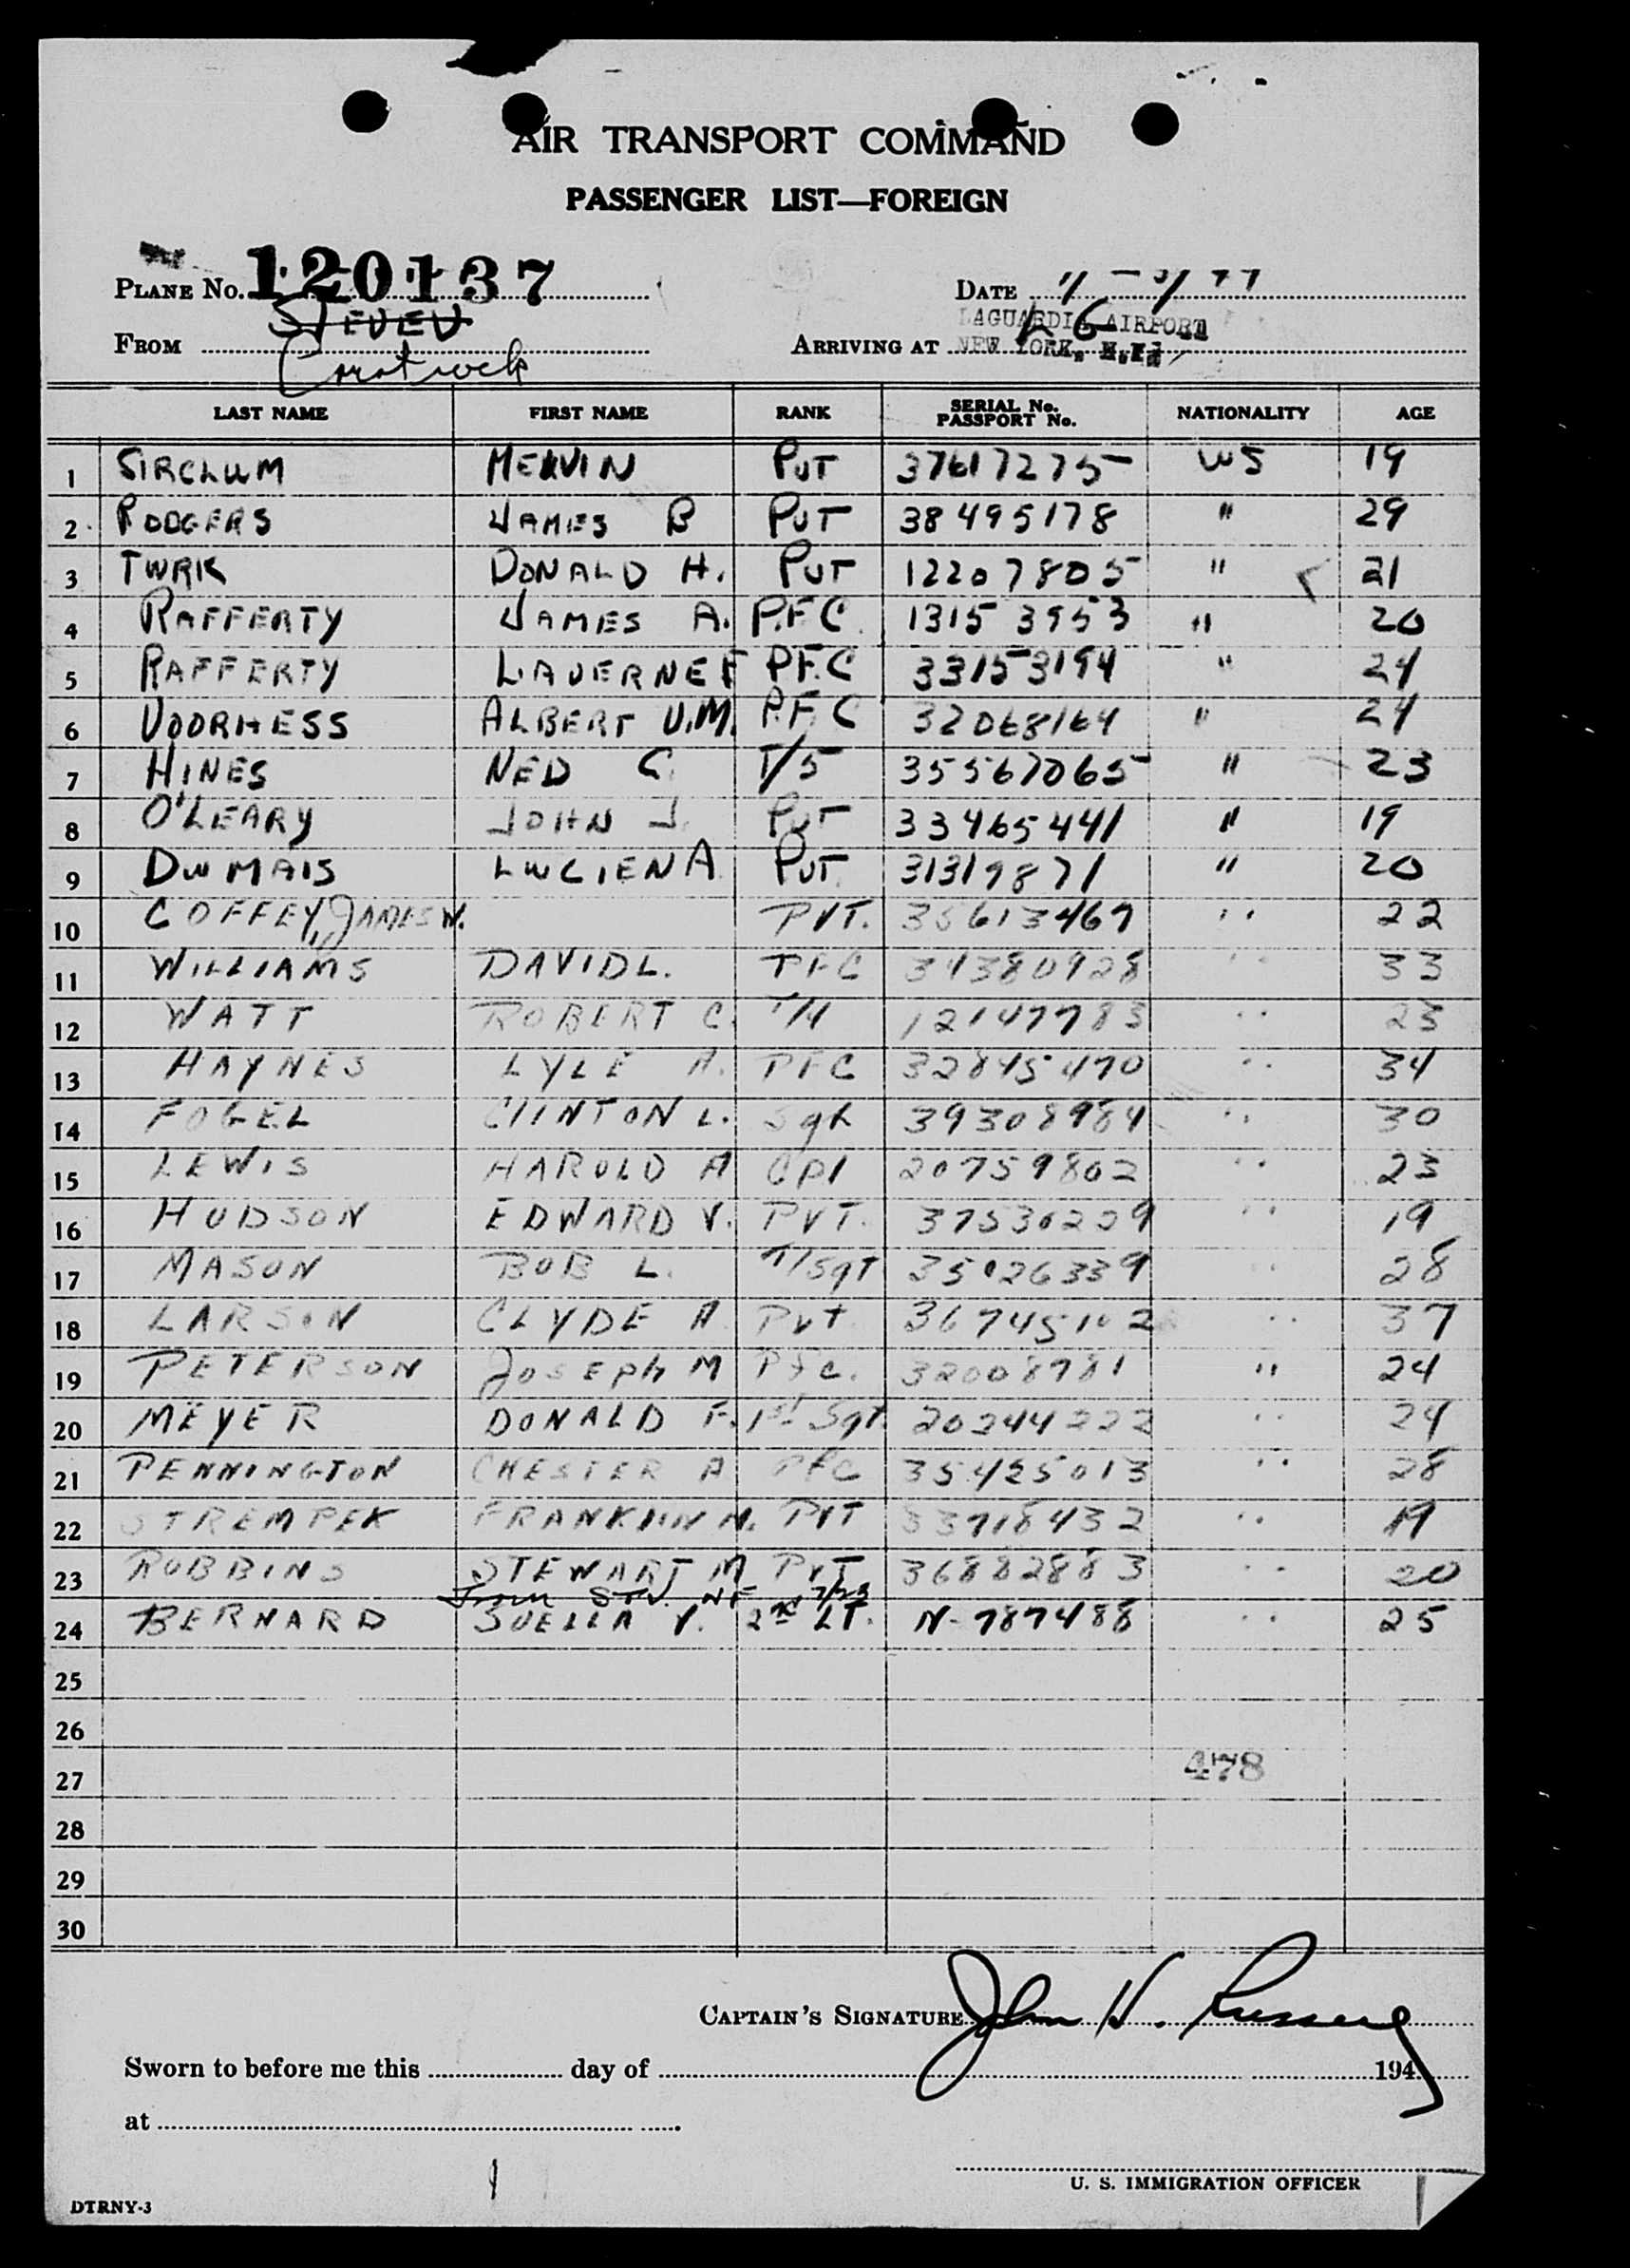 AIR TRANSPORT COMMAND
PASSENGER LIST—FOREIGN
PLANE No. 120137
DATE
FROM
LAGUARDIA AIRPORT
ARRIVING AT NEW YORK, N.Y.
LAST NAME FIRST NAME RANK SERIAL No. PASSPORT No. NATIONALITY AGE
1 SIRCLUM MELVIN PVT 37617275 US 19
2 RODGERS JAMES B PVT 38495178 " 29
3 TURK DONALD H. PVT 12207805 " 21
4 RAFFERTY JAMES A. P.F.C. 13153953 " 20
5 RAFFERTY LAVERNE F PF.C 33153194 " 24
6 VOORHESS ALBERT V.M. P.F.C 32068164 " 24
7 HINES NED C. T/5 35567065 " 23
8 O'LEARY JOHN J. PVT 33465441 " 19
9 DUMAIS LUCIEN A PVT. 31319871 " 20
10 COFFEY, JAMES W. PVT. 35613467 " 22
11 WILLIAMS DAVID L. PFC 34380928 " 33
12 WATT ROBERT C. T/4 12147783 " 23
13 HAYNES LYLE A. PFC 32845470 " 34
14 FOGEL CLINTON L. Sgt 39308984 " 30
15 LEWIS HAROLD A Cpl 20759802 " 23
16 HUDSON EDWARD V. PVT. 37536229 " 19
17 MASON BOB L. T/Sgt 35026339 " 28
18 LARSON CLYDE A Pvt " 37
19 PETERSON JOSEPH M Pfc. 32008781 " 24
20 MEYER DONALD F. 1st Sgt. 20244222 " 24
21 PENNINGTON CHESTER A Pfc 35425013 " 28
22 STREMPEK FRANKLIN N. PVT 33718432 " 19
23 ROBBINS STEWART M PVT 36882883 " 20
From STV. NF
24 BERNARD SUELLA V. 2nd LT. N-787488 " 25
25
26
27 478
28
29
30
CAPTAIN'S SIGNATURE John H.
Sworn to before me this day of 194
at
U. S. IMMIGRATION OFFICER
DTRNY-3